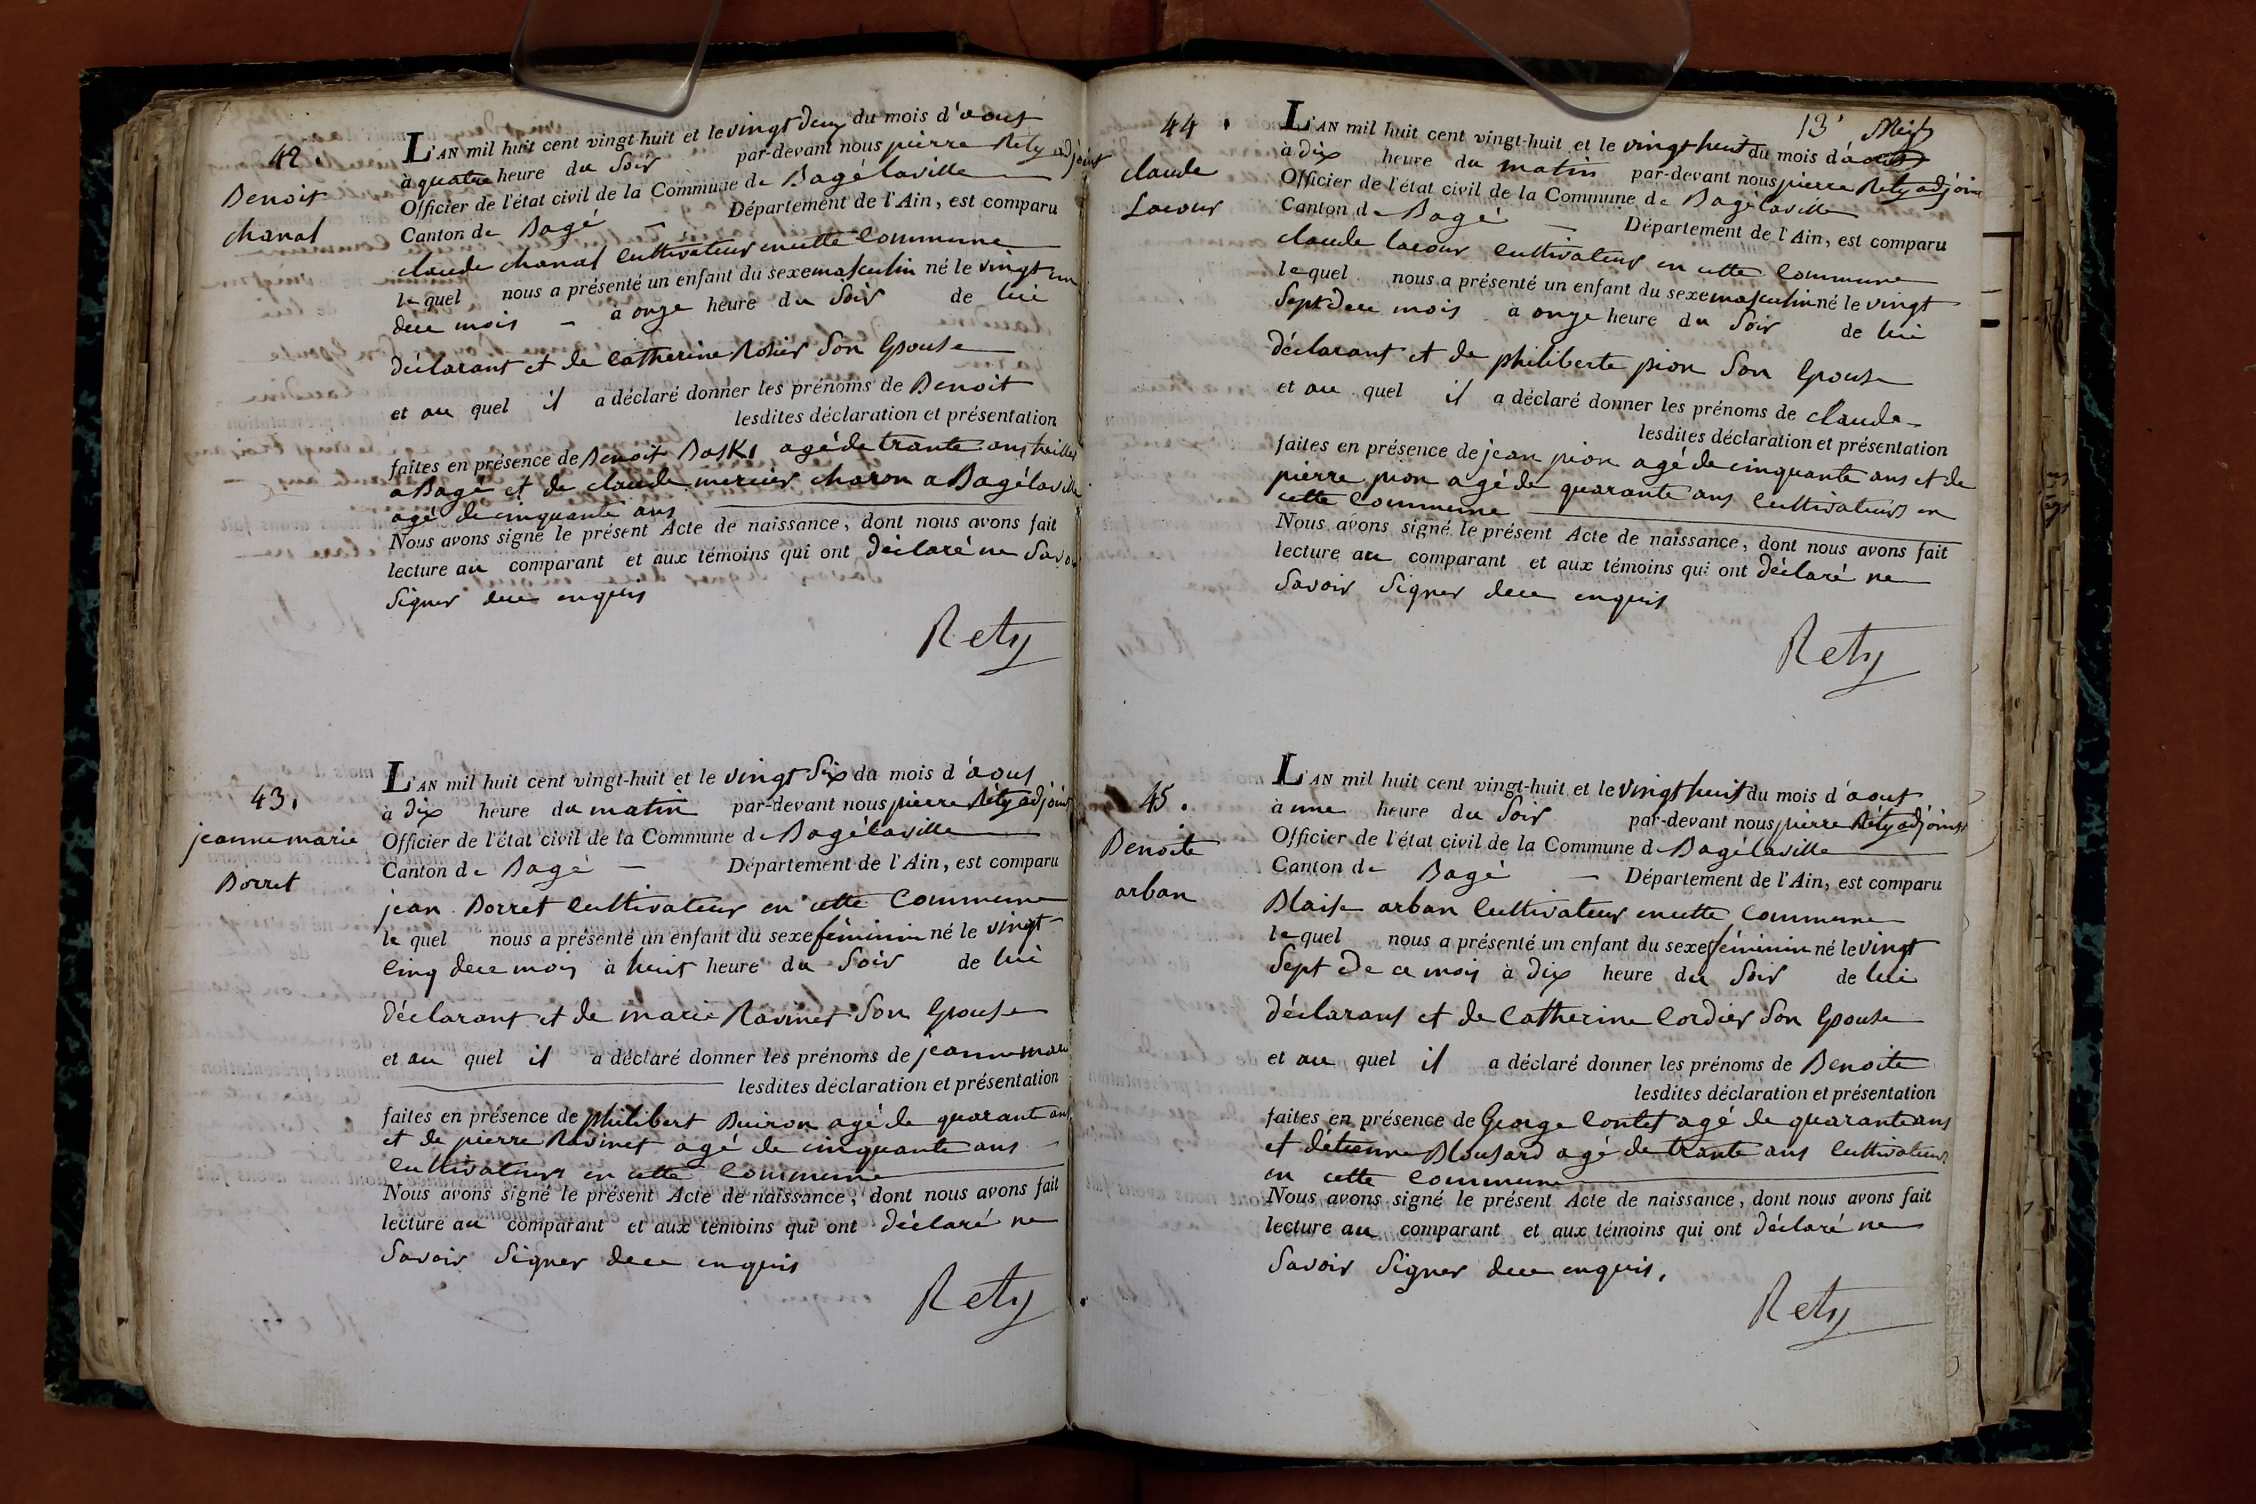 42.
Benoit
chanal
L'AN mil huit cent vingt-huit et le vingt deux du mois d'aout
à quatre heure du Soir par-devant nous pierre Rety adjoint
Officier de l'état civil de la Commune de Bagélaville
Canton de Bagé — Département de l'Ain, est comparu
claude chanal Cultivateur en cette Commune
lequel nous a présenté un enfant du sexe masculin né le vingt un
de ce mois - à onze heure du Soir de lui
déclarant et de Catherine Son Epouse
et au quel il a déclaré donner les prénoms de Benoit
lesdites déclaration et présentation
faites en présence de Benoit agé de trante ans
a Bagé et de claude mercier charon a Bagélaville
agé de cinquante ans
Nous avons signé le présent Acte de naissance, dont nous avons fait
lecture au comparant et aux témoins qui ont déclaré ne Savoir
Signer de ce enquis
Rety
43.
jeanne marie
Borret
L'AN mil huit cent vingt-huit et le vingt Six du mois d'aout
à dix heure du matin par-devant nous pierre Rety adjoint
Officier de l'état civil de la Commune de Bagélaville
Canton de Bagé — Département de l'Ain, est comparu
jean Borret Cultivateur en cette Commune
le quel nous a présenté un enfant du sexe féminin né le vingt
Cinq de ce mois à huit heure du Soir de lui
déclarant et de marie Ravinet Son Epouse
et au quel il a déclaré donner les prénoms de jeanne marie
lesdites déclaration et présentation
faites en présence de philibert Buiron agé de quarante ans
et de pierre Ravinet agé de cinquante ans
Cultivateurs en cette Commune
Nous avons signé le présent Acte de naissance, dont nous avons fait
lecture au comparant et aux témoins qui ont déclaré ne
Savoir Signer de ce enquis
Rety
13
44.
claude
Lacour
L'AN mil huit cent vingt-huit et le vingt huit du mois d'aout
à dix heure du matin par-devant nous pierre Rety adjoint
Officier de l'état civil de la Commune de Bagélaville
Canton de Bagé — Département de l'Ain, est comparu
claude lacour Cultivateur en cette Commune
lequel nous a présenté un enfant du sexe masculin né le vingt
Sept de ce mois à onze heure du Soir de lui
déclarant et de philiberte pion Son Epouse
et au quel il a déclaré donner les prénoms de claude
lesdites déclaration et présentation
faites en présence de jean pion agé de cinquante ans et de
pierre pion agé de quarante ans Cultivateurs en
cette Commune
Nous avons signé le présent Acte de naissance, dont nous avons fait
lecture au comparant et aux témoins qui ont déclaré ne
Savoir Signer de ce enquis
Rety
45.
Benoite
arban
L'AN mil huit cent vingt-huit et le vingt huit du mois d'aout
à une heure du Soir par-devant nous pierre Rety adjoint
Officier de l'état civil de la Commune de Bagélaville
Canton de Bagé — Département de l'Ain, est comparu
Blaise arban Cultivateur en cette Commune
lequel nous a présenté un enfant du sexe féminin né le vingt
Sept de ce mois à dix heure du Soir de lui
déclarant et de Catherine Cordier Son Epouse
et au quel il a déclaré donner les prénoms de Benoite
lesdites déclaration et présentation
faites en présence de George Contet agé de quarante ans
et détienne Blousard agé de trante ans Cultivateurs
en cette Commune
Nous avons signé le présent Acte de naissance, dont nous avons fait
lecture au comparant et aux témoins qui ont déclaré ne
Savoir Signer de ce enquis.
Rety